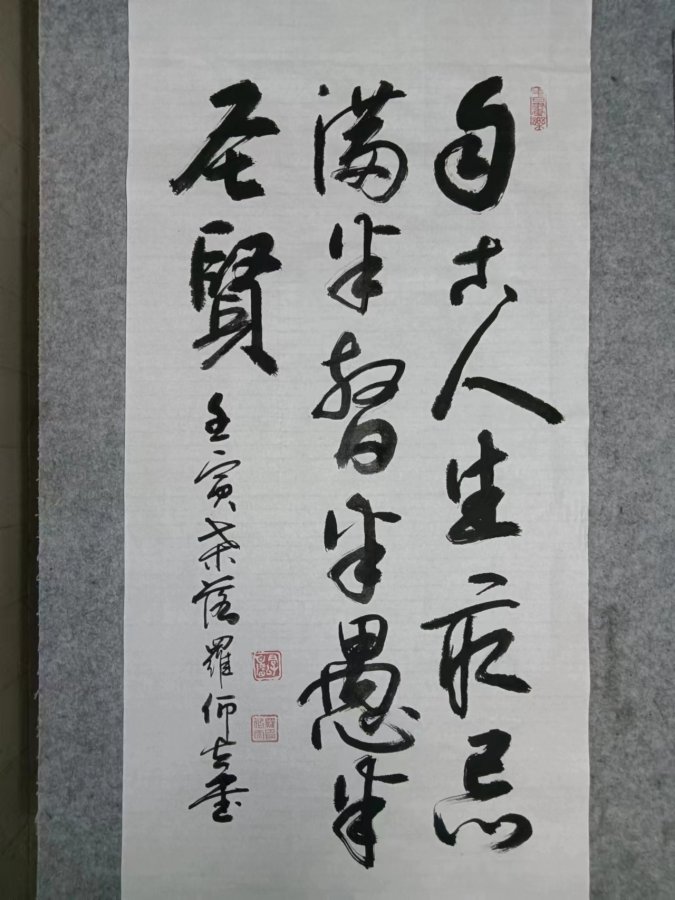 自古人生最忌
满半智半愚半
圣賢
壬寅羅仰書